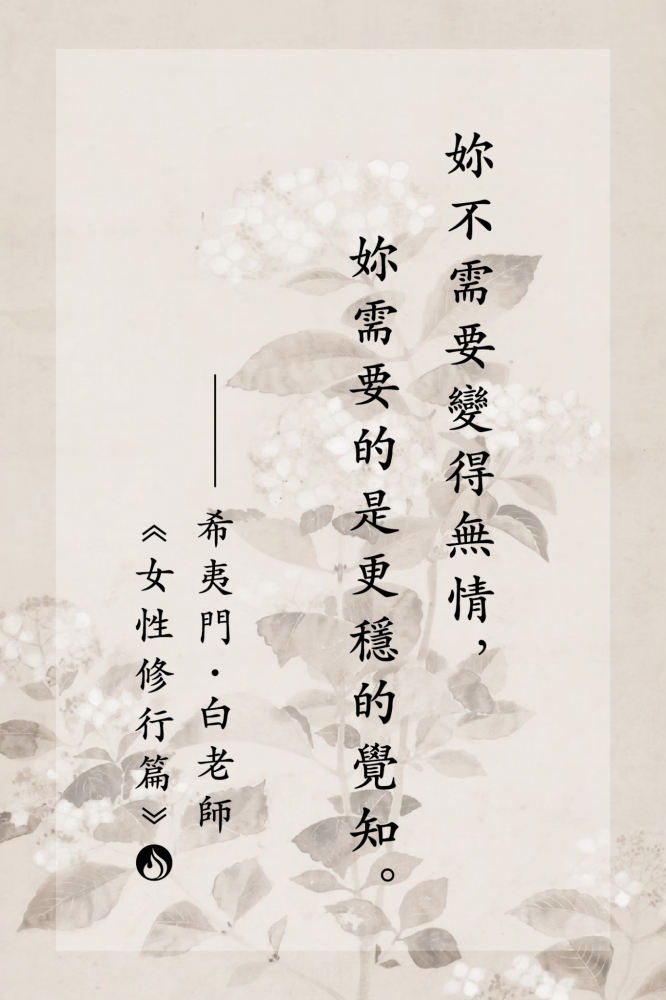 妳不需要變得無情，
妳需要的是更穩的覺知。
——希夷門・白老師
《女性修行篇》